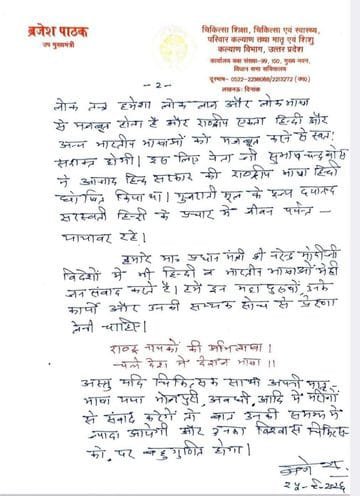 ब्रजेश पाठक
उप मुख्यमंत्री
चिकित्सा शिक्षा, चिकित्सा एवं स्वास्थ्य,
परिवार कल्याण तथा मातृ एवं शिशु
कल्याण विभाग, उत्तर प्रदेश
कार्यालय कक्ष संख्या-99, 100, मुख्य भवन,
विधान सभा सचिवालय
दूरभाष- 0522-2238088/2213272 (का0)
लखनऊ: दिनांक
-2-
लोक तन्त्र हमेशा लोक लाज और लोक भाषा
से मजबूत होता है और राष्ट्रीय एकता हिन्दी और
अन्य भारतीय भाषाओं को मजबूत करने से स्वतः
सशक्त होगी। इस लिए नेता जी सुभाष चन्द्र बोस
ने आजाद हिन्द सरकार की राष्ट्रीय भाषा हिन्दी
घोषित किया था। गुजराती मूल के दयानन्द
सरस्वती हिन्दी के प्रचार में जीवन पर्यन्त
यायावर रहे।
हमारे प्रधान मंत्री श्री नरेन्द्र मोदी जी
विदेशों में भी हिन्दी व भारतीय भाषाओं में ही
जन संवाद करते हैं। हमें इन महा पुरुषों, इनके
कार्यों और उनकी सम्यक सोच से प्रेरणा
लेनी चाहिए।
राष्ट्र नायकों की अभिलाषा।
चले देश में देशज भाषा।।
अस्तु यदि चिकित्सक साथी अपनी मातृ
भाषा यथा भोजपुरी, अवधी, आदि में मरीजों
से संवाद करेंगे तो बात उनकी समझ में
ज्यादा आयेगी और उनका विश्वास चिकित्स-
कों पर बहुगुणित होगा।